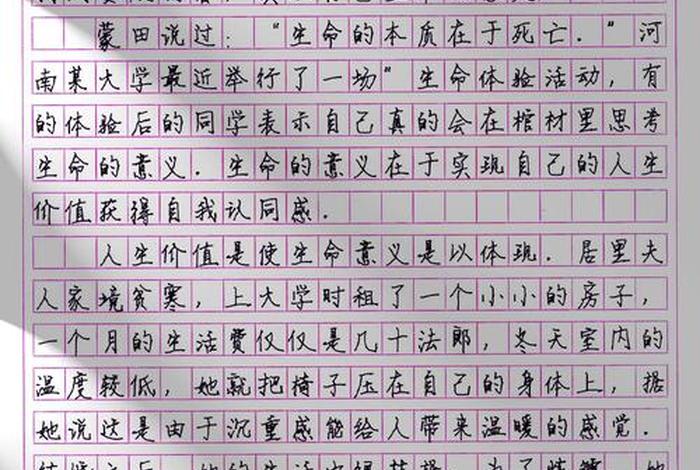 蒙田说过：“生命的本质在于死亡.”河
南某大学最近举行了一场“生命体验活动，有
的体验后的同学表示自己真的会在棺材里思考
生命的意义.生命的意义在于实现自己的人生
价值获得自我认同感.
人生价值是使生命意义是以体现.居里夫
人家境贫寒，上大学时租了一个小小的房子，
一个月的生活费仅仅是几十法郎，冬天室内的
温度较低，她就把椅子压在自己的身体上，据
她说这是由于沉重感能给人带来温暖的感觉.